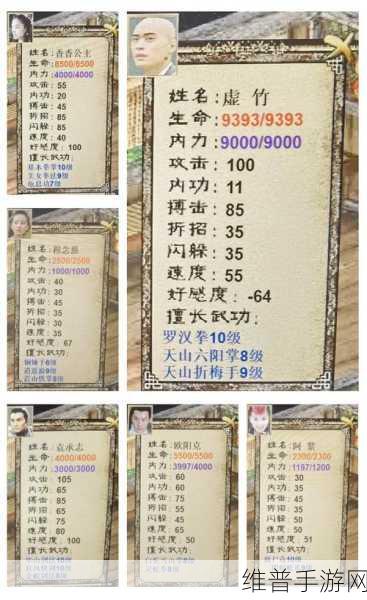 姓名:香香公主
生命:8500/8500
内力:4000/4000
攻击: 55
内功: 20
搏击: 45
拆招: 85
闪躲: 85
速度: 40
好感度: 100
擅长武功:
基本拳掌10级
美女拳法9级
姓名:虚竹
生命:9393/9393
内力:9000/9000
攻击: 100
内功: 11
搏击: 85
拆招: 35
闪躲: 35
速度: 55
好感度: -64
擅长武功:
罗汉拳10级
天山六阳掌8级
天山折梅手9级
姓名:程之恩
生命:2500/2500
内力:1000/1000
攻击: 40
内功: 30
搏击: 45
拆招: 35
闪躲: 30
速度: 35
好感度: 67
擅长武功:
逍遥游9级
姓名:袁承志
生命:4000/4000
内力:3000/3000
攻击: 105
内功: 65
搏击: 85
拆招: 65
闪躲: 75
速度: 80
好感度: 100
擅长武功:
姓名:欧阳克
生命:5500/5500
内力:3997/4000
攻击: 60
内功: 60
搏击: 75
拆招: 55
闪躲: 45
速度: 50
好感度: 50
擅长武功:
姓名:阿紫
生命:2300/2300
内力:1197/1200
攻击: 30
内功: 35
搏击: 30
拆招: 35
闪躲: 50
速度: 50
好感度: 51
擅长武功:
维普手游网